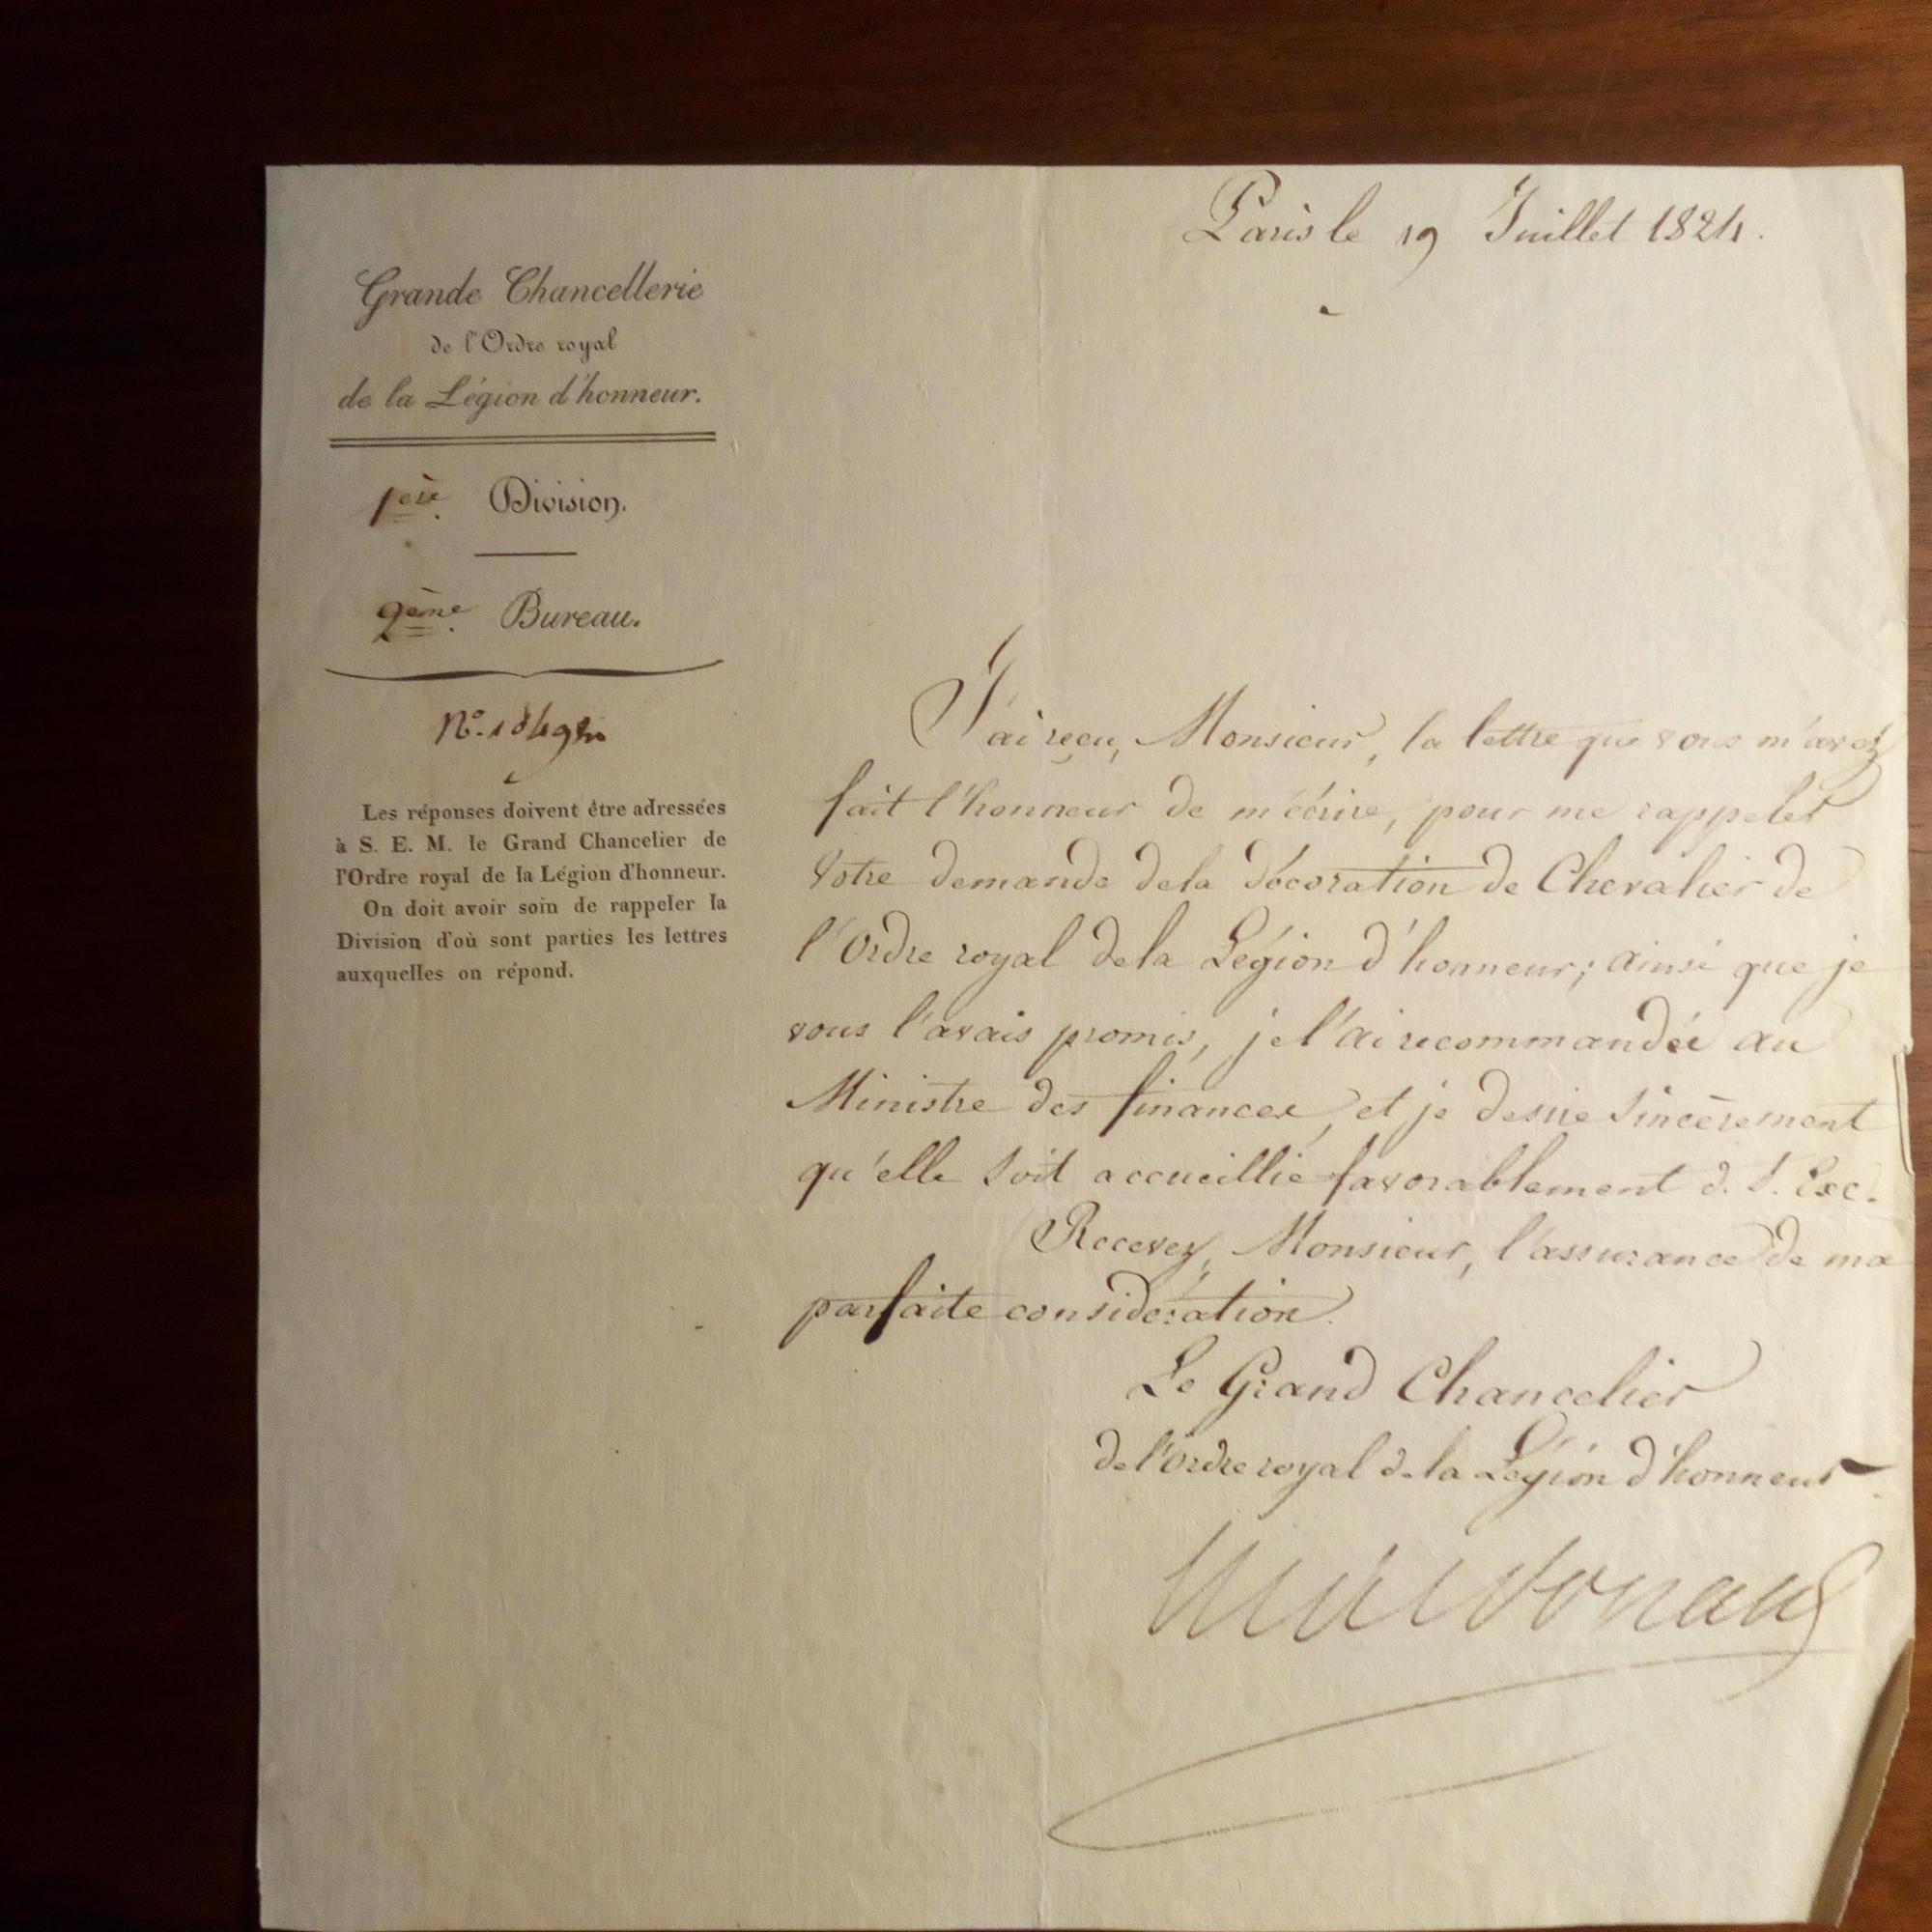 Paris le 19 Juillet 1824.
Grande Chancellerie
de l'Ordre royal
de la Légion d'honneur.
1ère Division.
2ème Bureau.
N.º
Les réponses doivent être adressées
à S. E. M. le Grand Chancelier de
l'Ordre royal de la Légion d'honneur.
On doit avoir soin de rappeler la
Division d'où sont parties les lettres
auxquelles on répond.
J'ai reçu, Monsieur, la lettre que vous m'avez
fait l'honneur de m'écrire, pour me rappeler
votre demande de la décoration de Chevalier de
l'Ordre royal de la Légion d'honneur; ainsi que je
vous l'avais promis, je l'ai recommandée au
Ministre des finances, et je desire sincèrement
qu'elle soit accueillie favorablement d. S. Exc.
Recevez, Monsieur, l'assurance de ma
parfaite considération.
Le Grand Chancelier
de l'Ordre royal de la Légion d'honneur
Macdonald